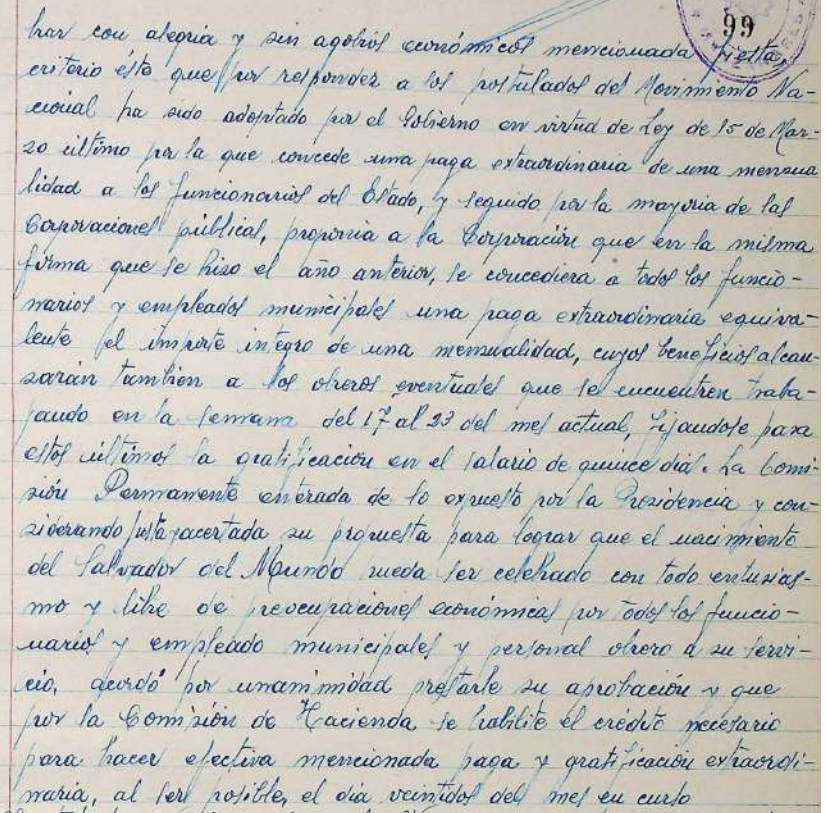 99
brar con alegria y sin agobios económicos mencionada fiesta,
criterio ésto que por responder a los postulados del Movimiento Na-
cional ha sido adoptado por el Gobierno en virtud de Ley de 15 de Mar-
zo último por la que concede una paga extraordinaria de una mensua
lidad a los funcionarios del Estado, y seguido por la mayoria de las
Corporaciones públicas, proponia a la Corporación que en la misma
forma que se hizo el año anterior, se concediera a todos los funcio-
narios y empleados municipales una paga extraordinaria equiva-
lente al importe integro de una mensualidad, cuyos beneficios alcan-
zarán tambien a los obreros eventuales que se encuentren traba-
jando en la semana del 17 al 23 del mes actual, fijandose para
estos últimos la gratificación en el salario de quince dias. La Comi-
sión Permanente enterada de lo expuesto por la Presidencia y con-
siderando justa y acertada su propuesta para lograr que el nacimiento
del Salvador del Mundo pueda ser celebrado con todo entusias-
mo y libre de preocupaciones económicas por todos los funcio-
narios y empleado municipales y personal obrero a su servi-
cio, acordó por unanimidad prestarle su aprobación y que
por la Comisión de Hacienda se habilite el crédito necesario
para hacer efectiva mencionada paga y gratificación extraordi-
naria, al ser posible, el dia veintidos del mes en curso